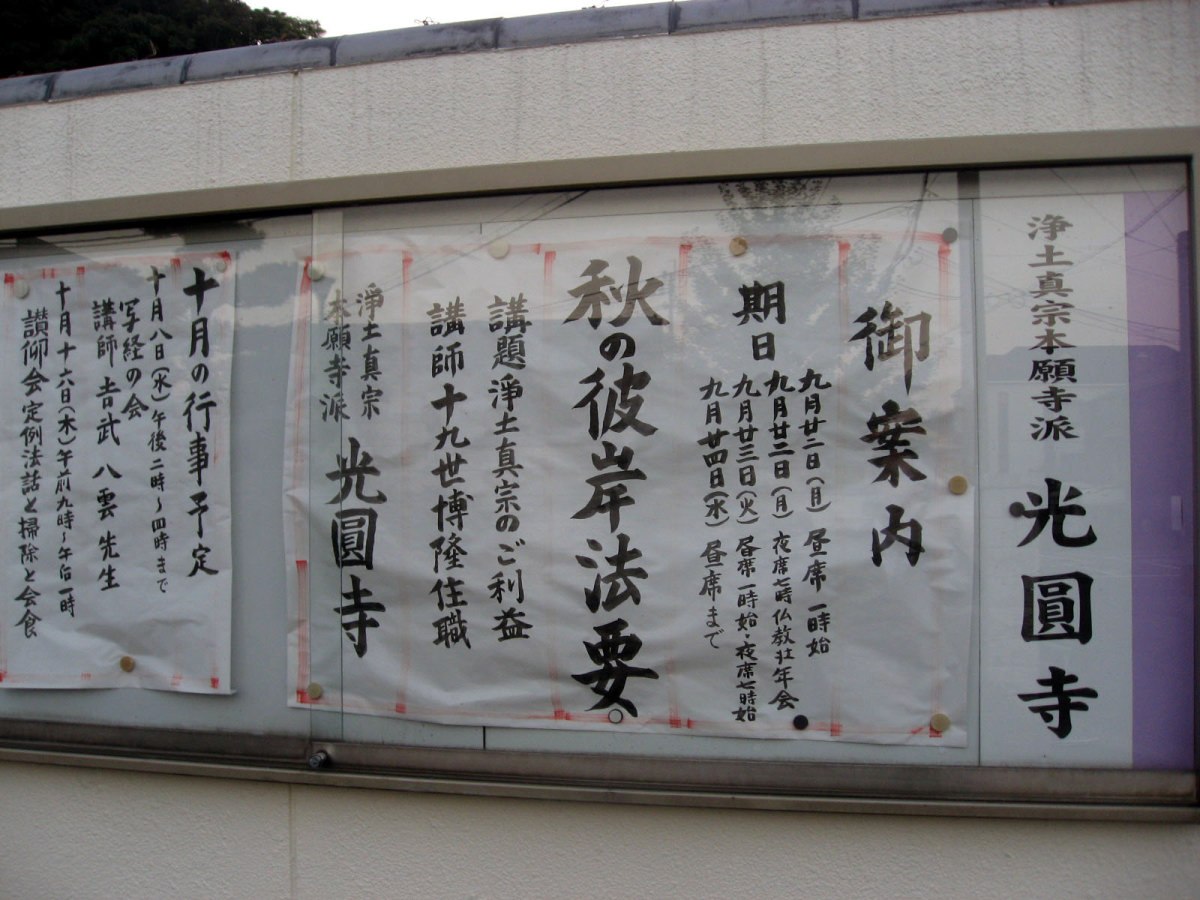 浄土真宗本願寺派 光圓寺
御案内
期日
九月廿二日(月) 昼席 一時始
九月廿二日(月) 夜席七時 仏教壮年会
九月廿三日(火) 昼席一時始・夜席七時始
九月廿四日(水) 昼席まで
秋の彼岸法要
講題 淨土真宗のご利益
講師 十九世博隆住職
淨土真宗
本願寺派 光圓寺
十月の行事予定
十月八日(水)午後二時〜四時まで
写経の会
講師 吉武 八雲先生
十月十六日(木)午前九時〜午后一時
讃仰会定例法話と掃除と会食